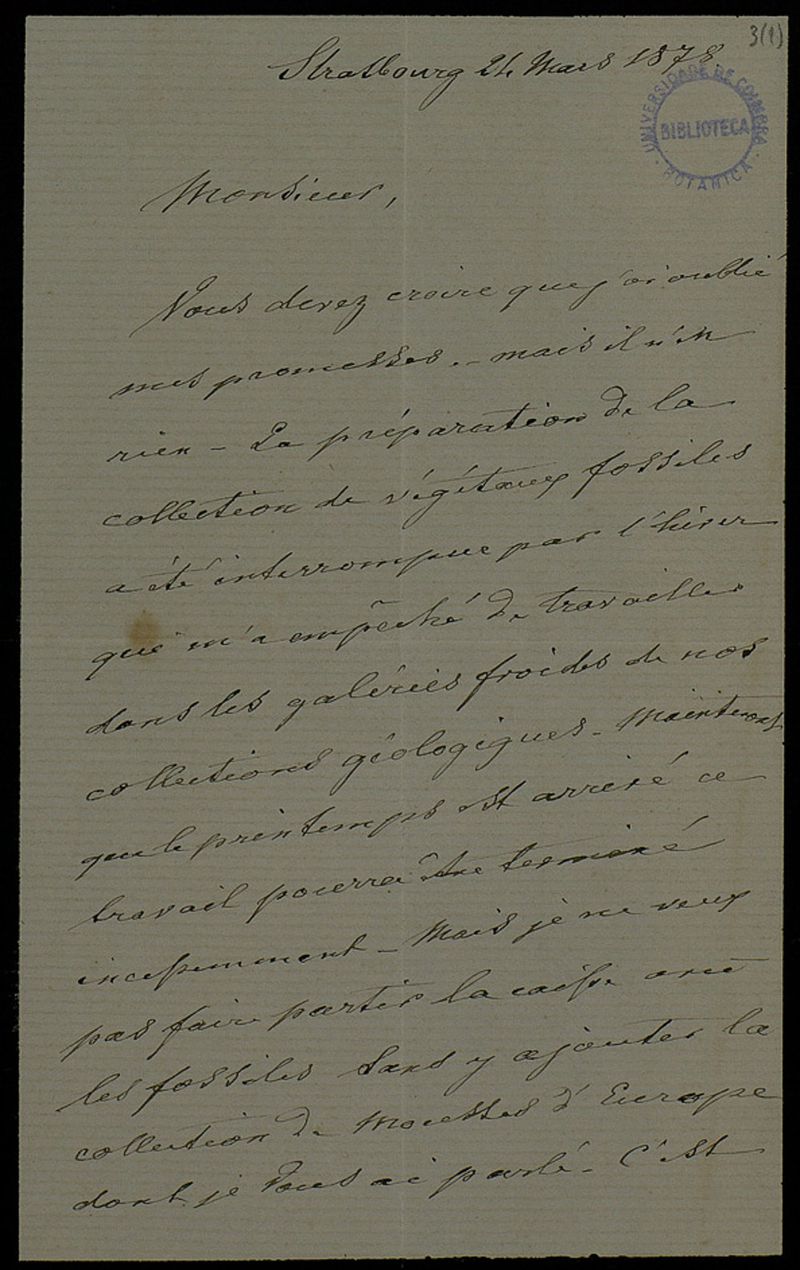 3(1)
Strasbourg 24 Mars 1878.
UNIVERSIDADE DE COIMBRA
BIBLIOTECA
BOTANICA
Monsieur,
Vous devez croire que j'ai oublié
mes promesses. – mais il n'en
rien – La préparation de la
collection de végétaux fossiles
a été interrompue par l'hiver
qui m'a empêché de travailler
dans les galéries froides de nos
collections géologiques – Maintenant
que le printemps est arrivé ce
travail pourra être terminé
incessemment – Mais je ne veux
pas faire partir la caisse avec
les fossiles sans y ajouter la
collection de Mousses d'Europe
dont je Vous ai parlé – C'est